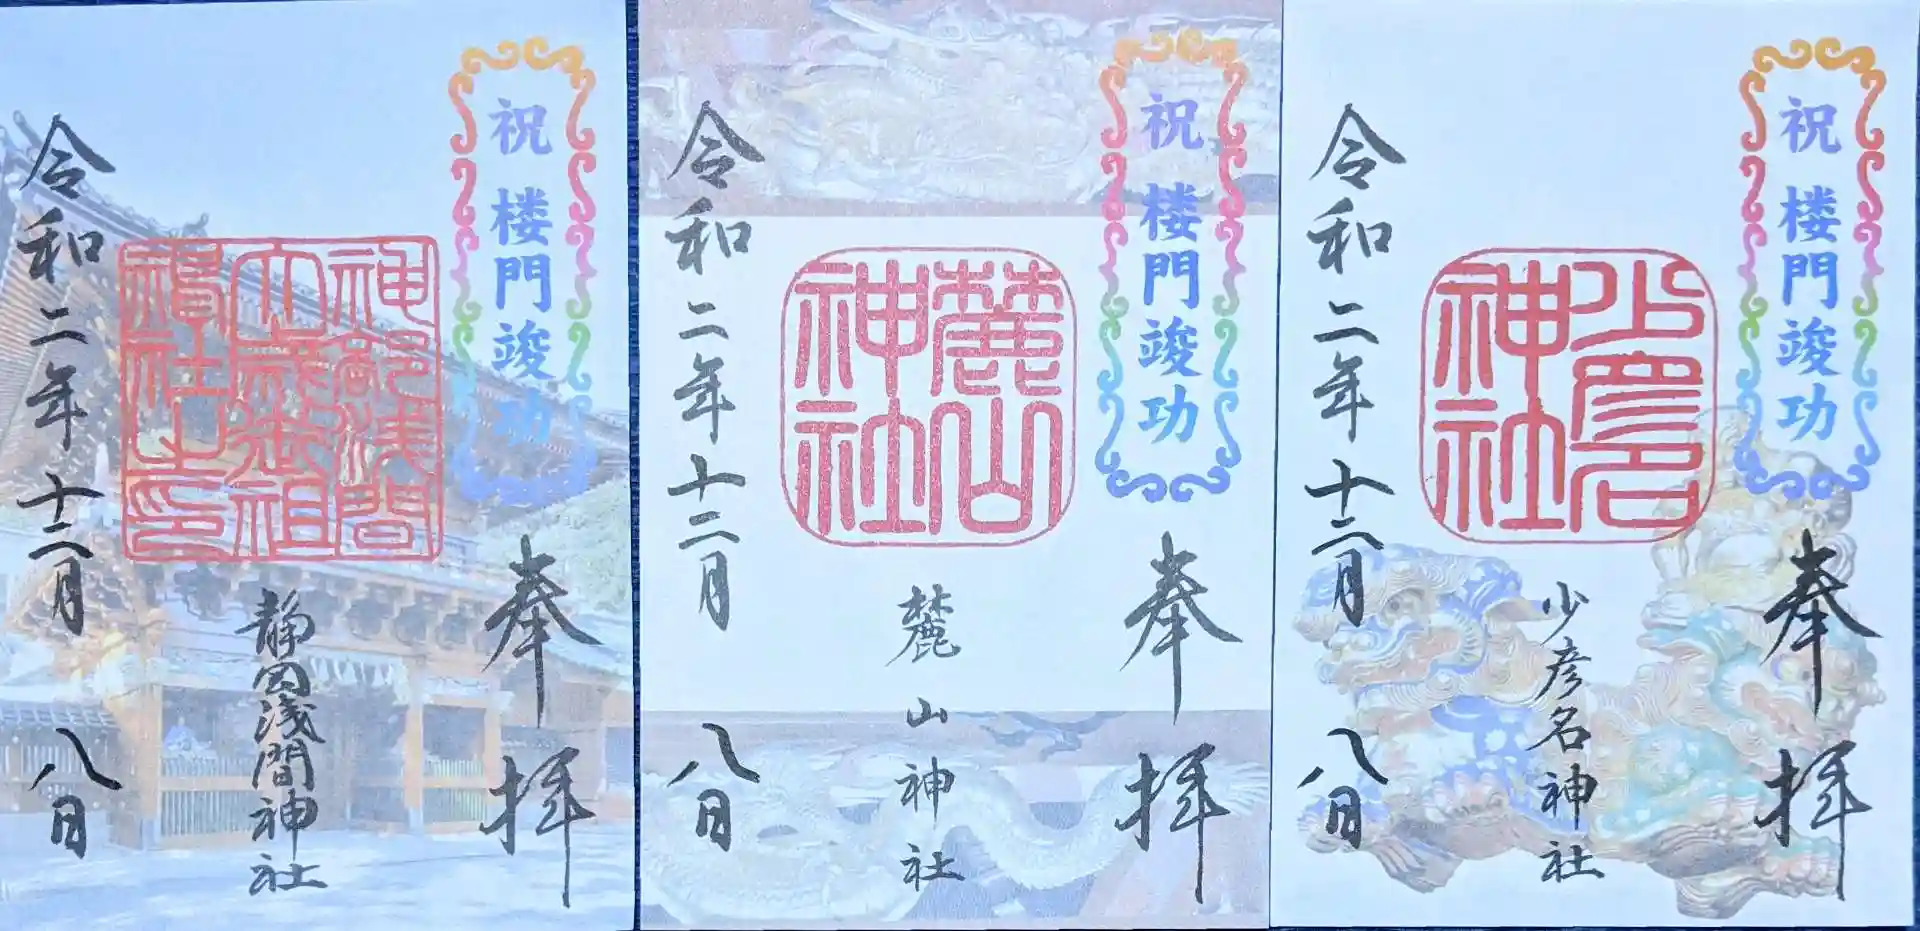 祝 楼門竣功
奉拝
神部浅間
大歳御祖
神社之印
静岡浅間神社
令和二年十二月八日
祝 楼門竣功
奉拝
麓山
神社
麓山神社
令和二年十二月八日
祝 楼門竣功
奉拝
少彦名
神社
少彦名神社
令和二年十二月八日